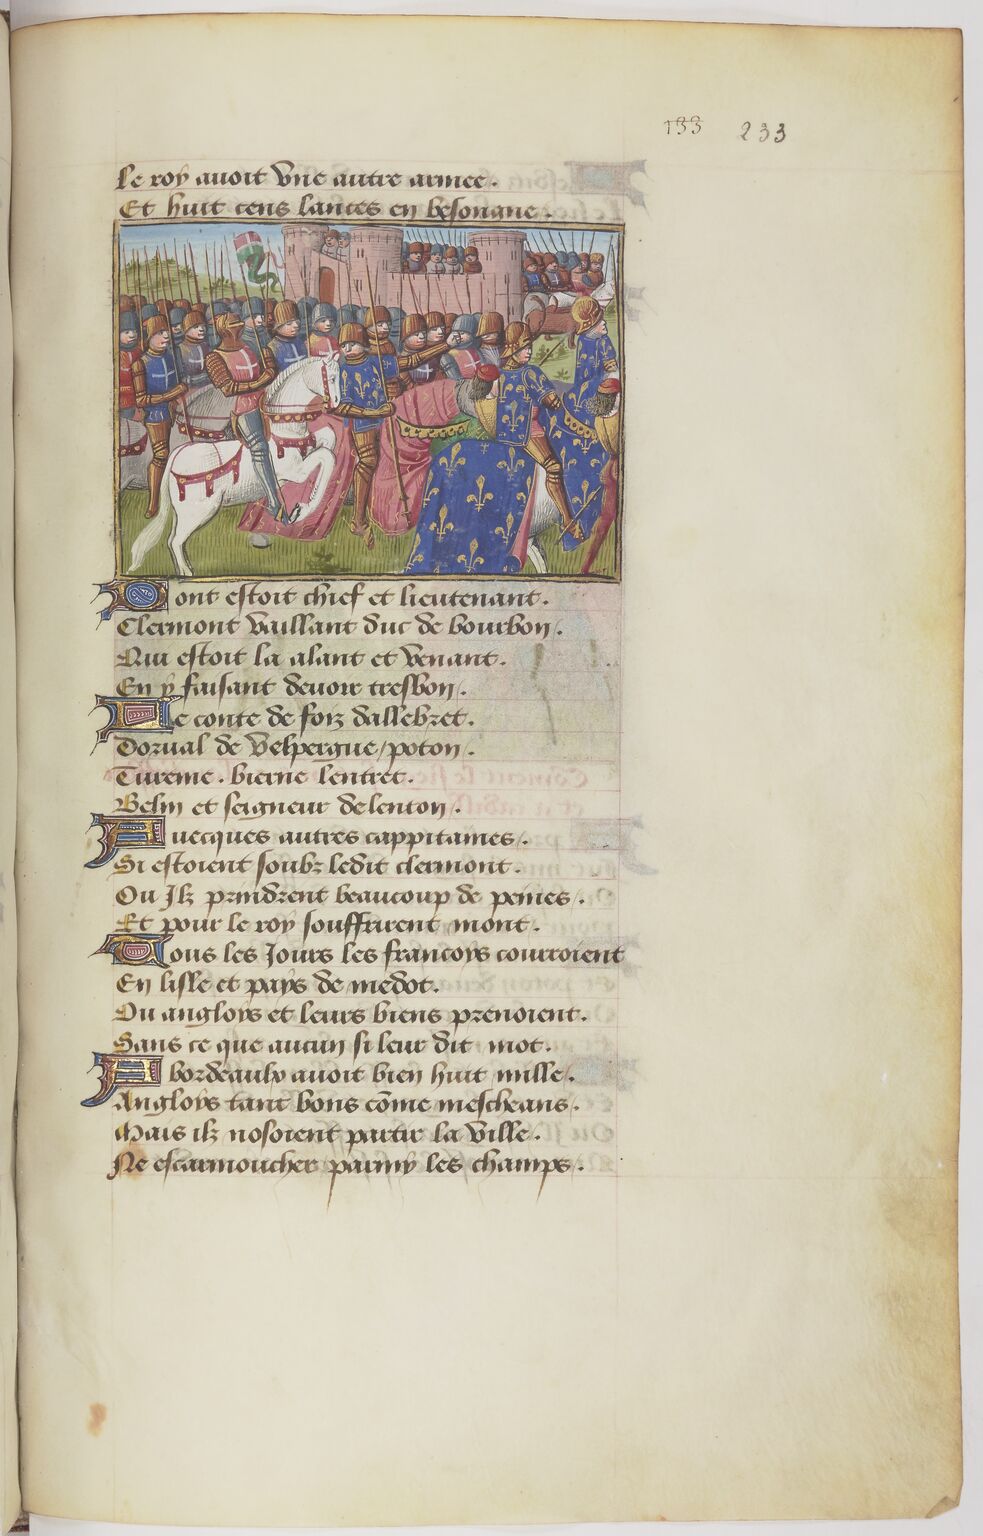 133 233
Le roy auoit vne autre armee.
Et huit cens lances en besongne.
Dont estoit chief et lieutenant.
Clermont vaillant duc de bourbon.
Qui estoit la alant et venant.
En y faisant deuoir tresbon.
Le conte de foiz dallebret.
Dorual de
poton.
Tureine. lentret.
et seigneur de
Auecques autres cappitaines.
Si estoient soubz ledit clermont.
Ou Ilz prindrent beaucoup de peines.
Et pour le roy souffrirent mont.
Tous les Jours les francoys courroient
En lisle et pays de medoc.
Ou angloys et leurs biens prenoient.
Sans ce que aucun si leur dit mot.
A bordeaulx auoit bien huit mille.
Angloys tant bons cõme mescheans.
Mais ilz nosoient partir la ville.
Ne escarmoucher parmy les champs.